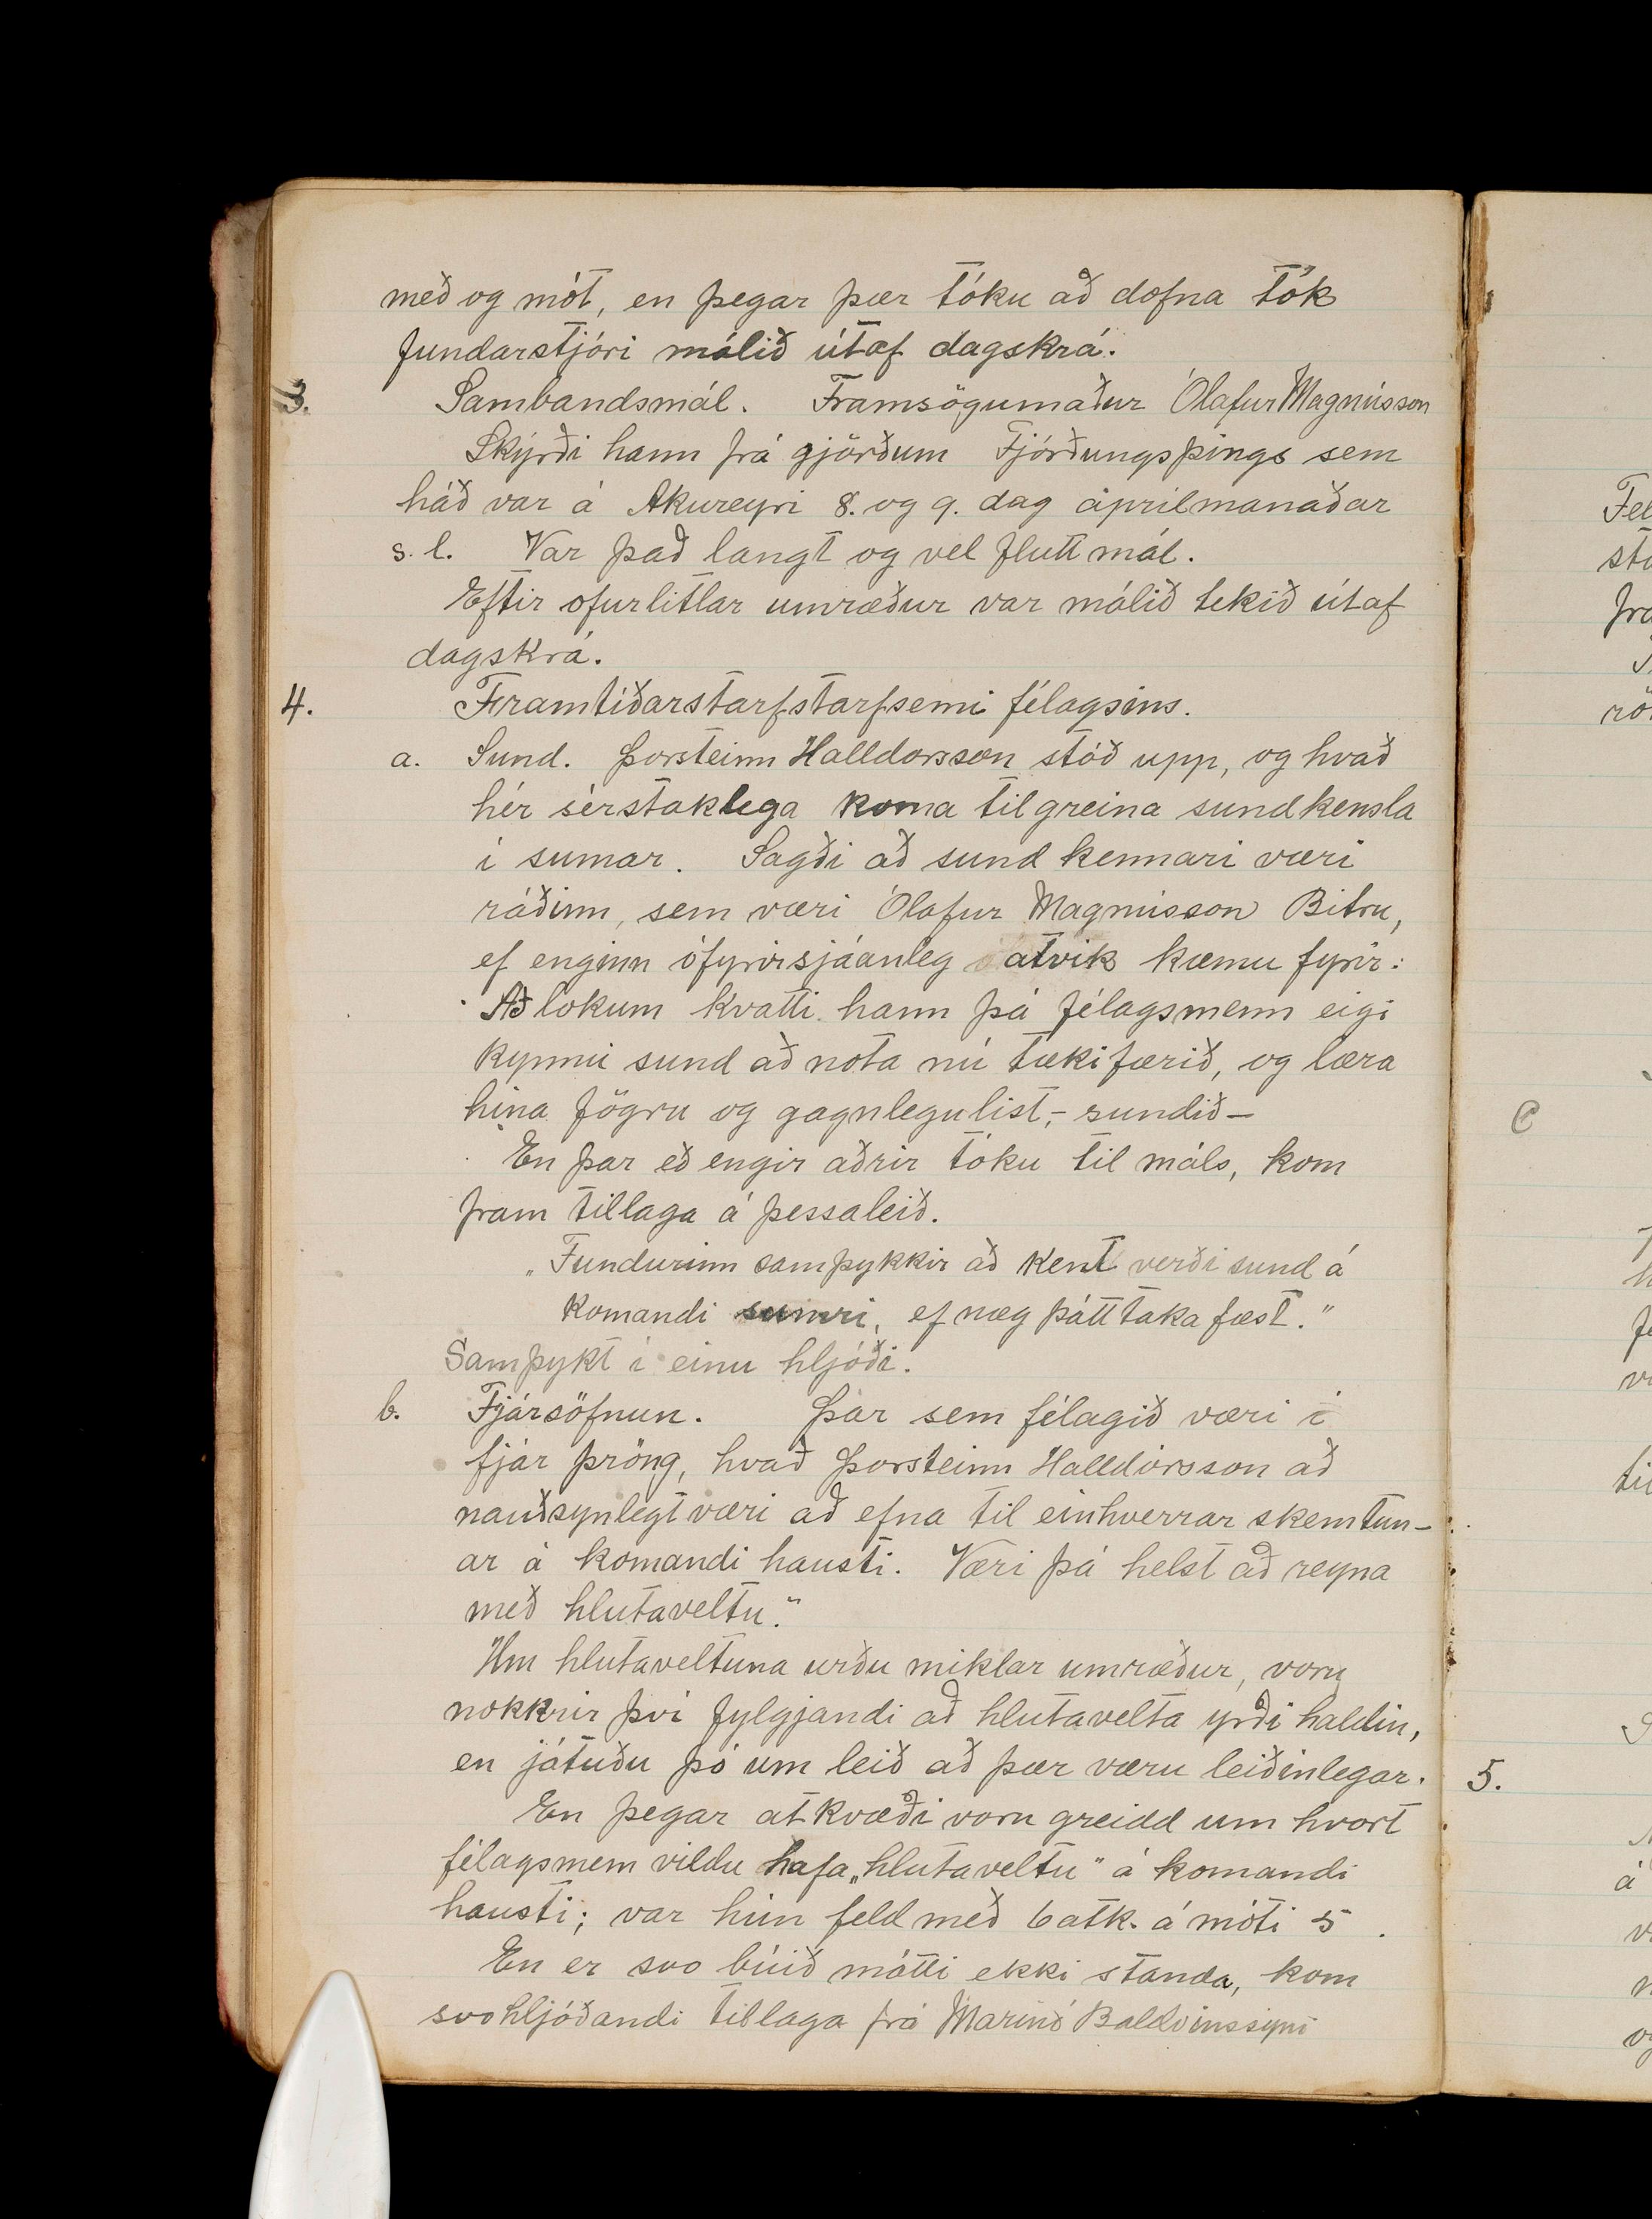 með og mót, en þegar þær tóku að dofna tók
fundarstjóri málið útaf dagskrá.
3. Sambandsmál. Framsögumaður Ólafur Magnússon
Skýrði hann frá gjörðum Fjórðungsþings sem
háð var á Akureyri 8. og 9. dag aprílmanaðar
s.l. Var það langt og vel flutt mál.
Eftir ofurlitlar umræður var málið tekið útaf
dagskrá.
4. Framtíðarstarfstarfsemi félagsins.
a. Sund. Þorsteinn Halldorsson stóð upp, og hvað
hér sérstaklega koma til greina sundkensla
í sumar. Sagði að sund kennari væri
ráðinn, sem væri Ólafur Magnússon Bitru,
ef enginn ófyrirsjáanleg atvik kæmu fyrir:
Að lokum kvatti hann þá félagsmenn eigi
kynnu sund að nota nú tækifærið, og læra
hina fögru og gagnlegu list,- sundið-
En þar eð engir aðrir tóku til máls, kom
fram tillaga á þessaleið.
„Fundurinn samþykkir að kent verði sund á
komandi sumri, ef næg þátttaka fæst."
Samþykt í einu hljóði.
b. Fjársöfnun. Þar sem félagið væri í
fjár þröng, hvað Þorsteinn Halldórsson að
nauðsynlegt væri að efna til einhverrar skemtun-
ar á komandi hausti. Væri þá helst að reyna
með hlutaveltu."
Um hlutaveltuna urðu miklar umræður, voru
nokkrir því fylgjandi að hlutavelta yrði haldin,
en játuðu þó um leið að þær væru leiðinlegar.
En þegar atkvæði voru greidd um hvort
félagsmem vildu hafa „hlutaveltu" á komandi
hausti; var hún feld með 6 atk. á móti 5.
En er svo búið mátti ekki standa, kom
svohljóðandi tillaga frá Marinó Baldvinssyni
5.